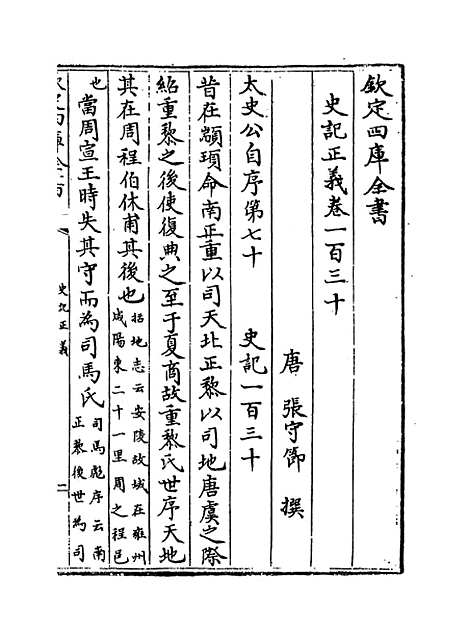 欽定四庫全書
史記正義卷一百三十
唐 張守節 撰
太史公自序第七十 史記一百三十
昔在顓頊命南正重以司天北正黎以司地唐虞之際
紹重黎之後使復典之至于夏商故重黎氏世序天地
其在周程伯休甫其後也
括地志云安陵故城在雍州
咸陽東二十一里周之程邑
也
當周宣王時失其守而為司馬氏
司馬彪序云南
正黎後世為司
史記正義